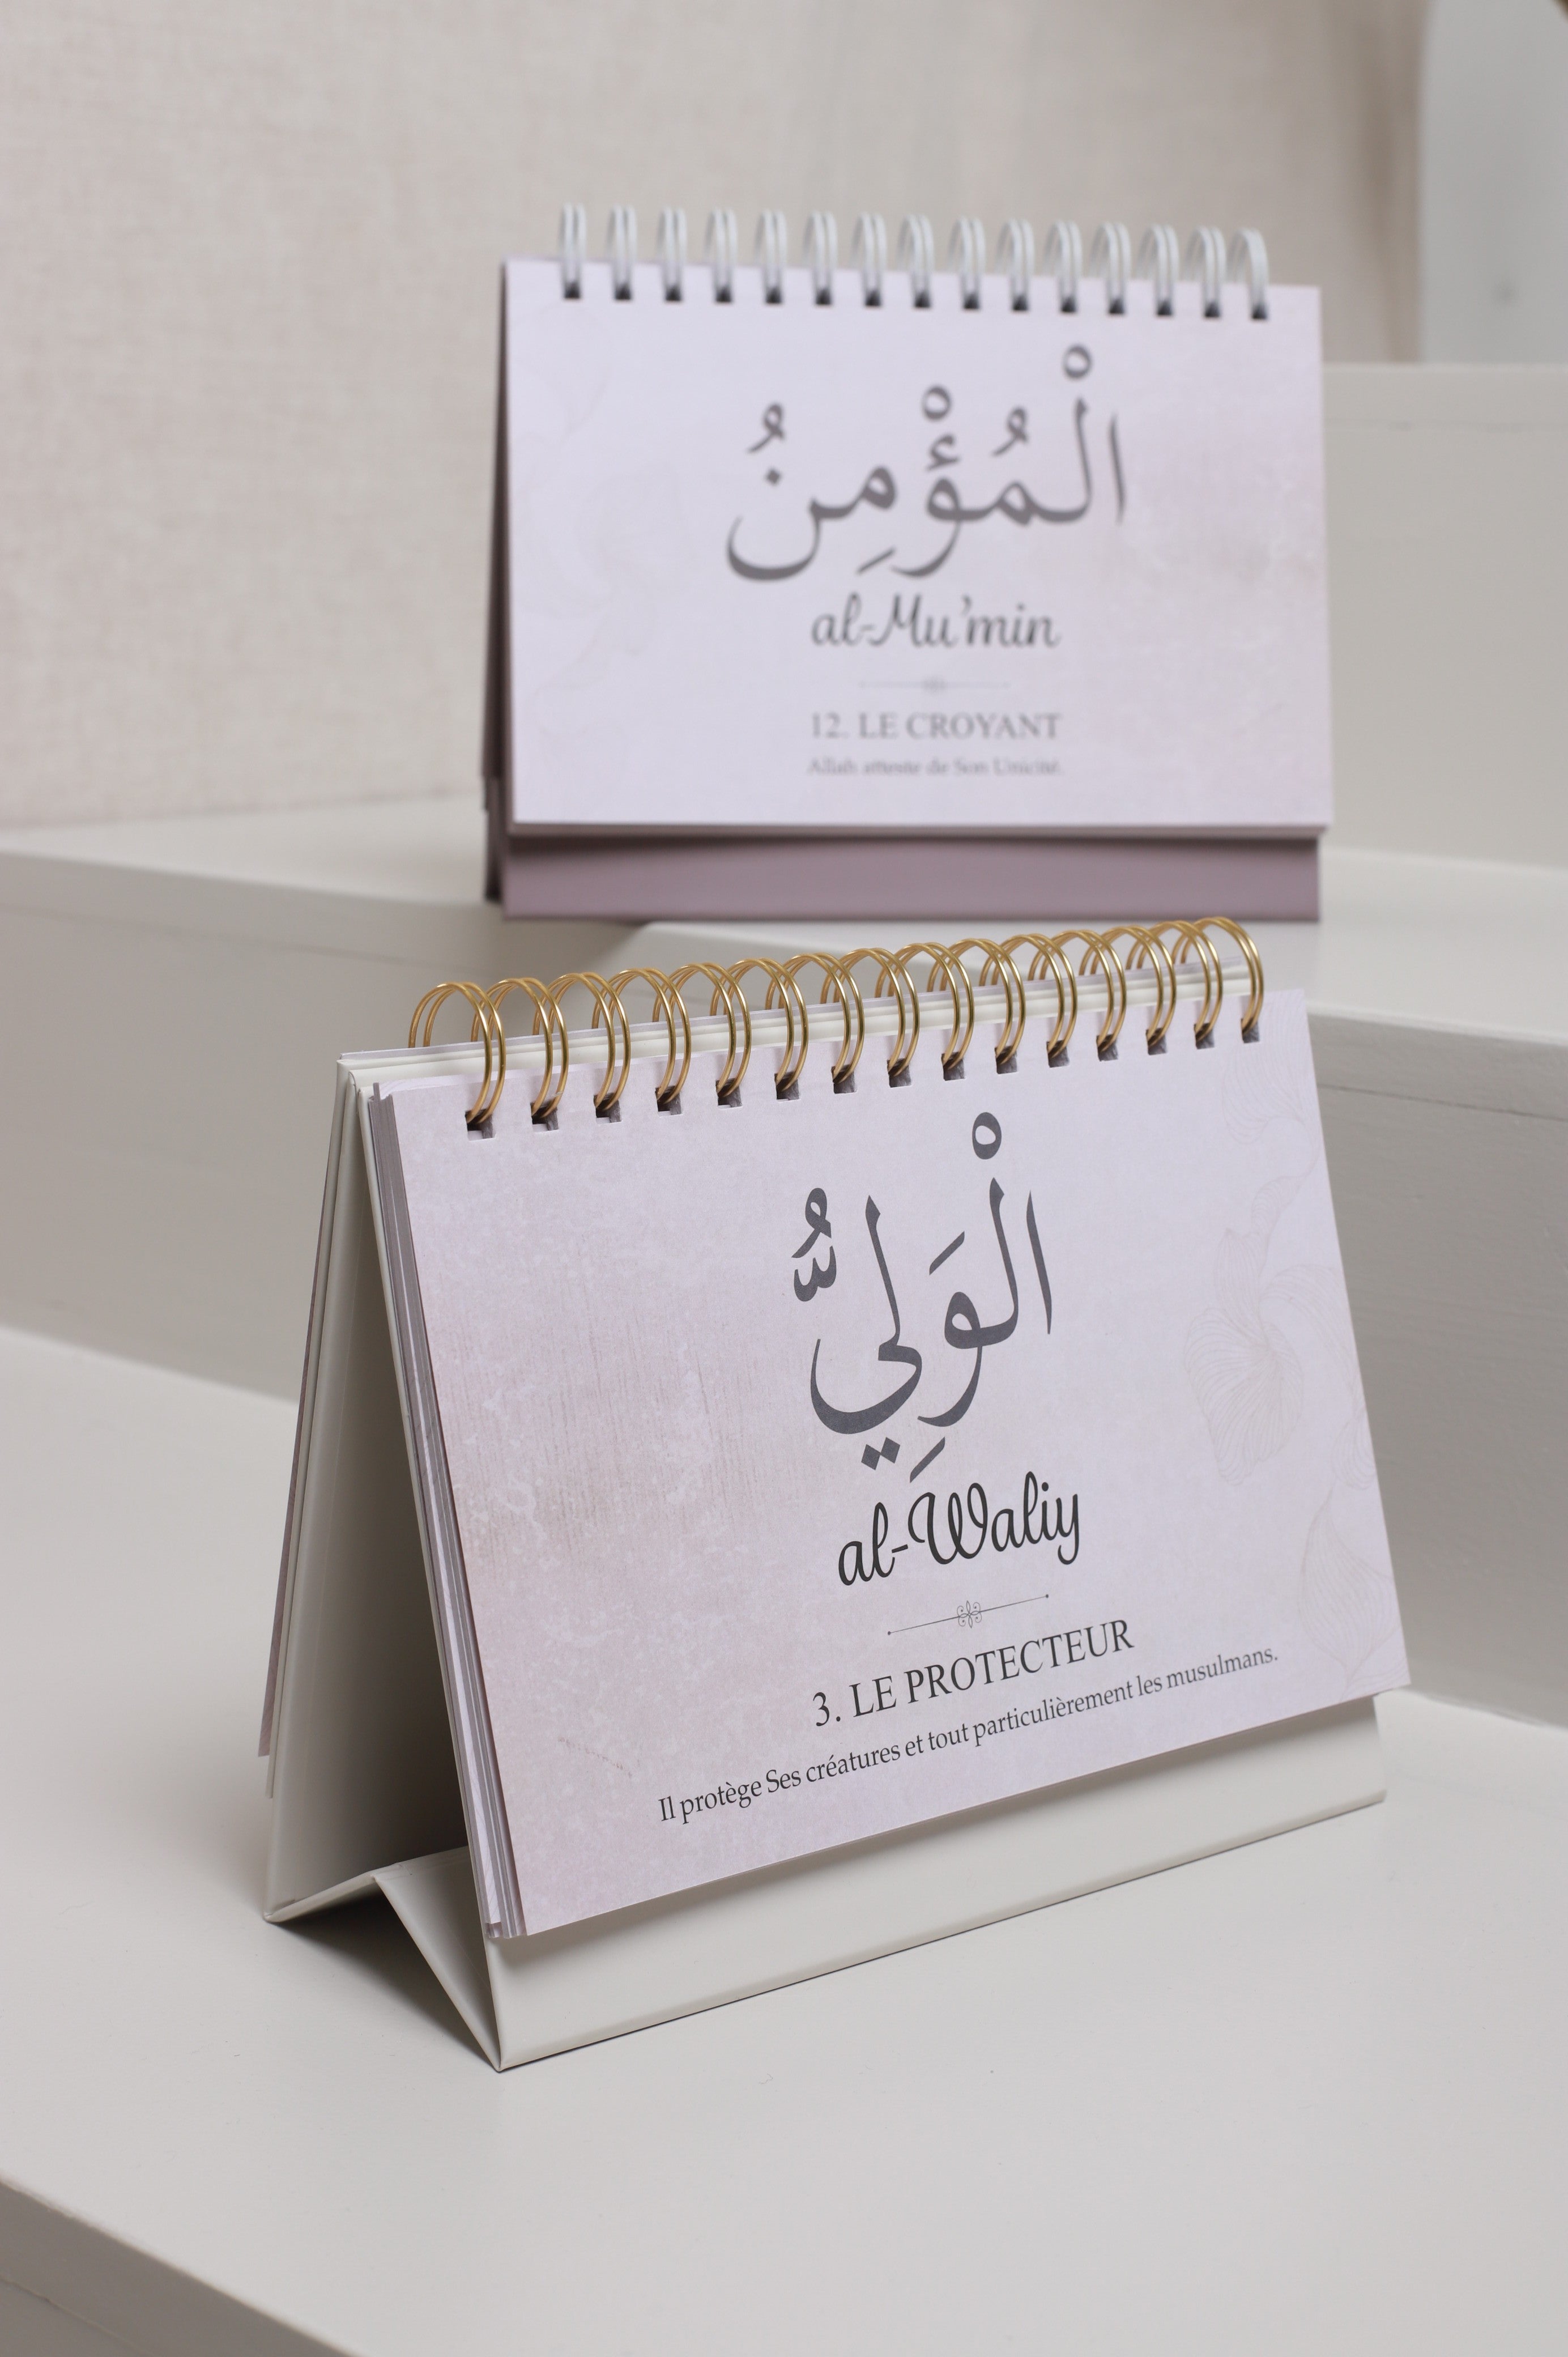 الْمُؤْمِنُ
al-Mu'min
12. LE CROYANT
Allah atteste de Son Unicité.
الْوَلِيُّ
al-Waliy
3. LE PROTECTEUR
Il protège Ses créatures et tout particulièrement les musulmans.